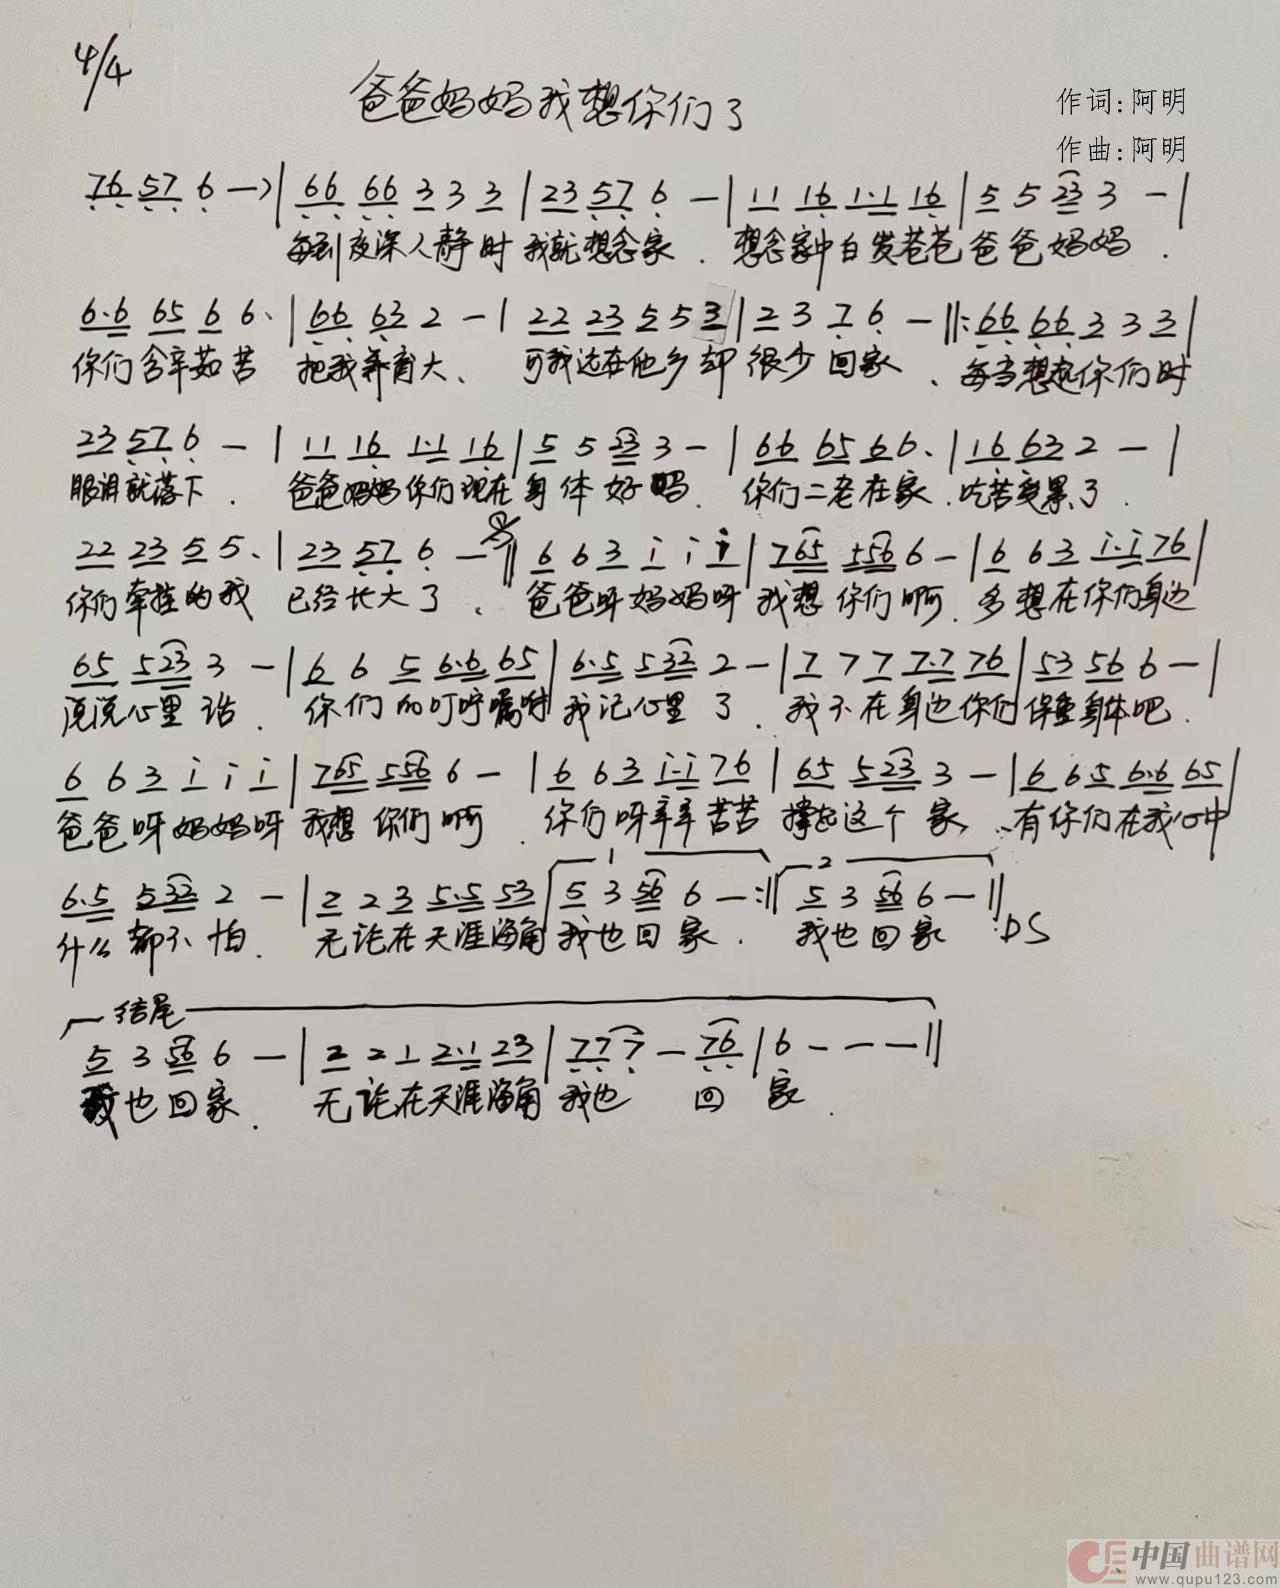 4/4
爸爸妈妈我想你们了
作词:阿明
作曲:阿明
76 57 6 — | 66 66 3 3 3 | 23 57 6 — | 11 16 1·1 16 | 5 5 23 3 — |
每到夜深人静时 我就想念家 . 想念家中白发苍苍爸爸妈妈 .
6·6 65 6 6· | 66 63 2 — | 22 23 5 5 3 | 2 3 7 6 — ‖: 66 66 3 3 3 |
你们含辛茹苦 把我养育大、 可我远在他乡却很少回家 、 每当想起你们时
23 57 6 — | 11 16 1·1 16 | 5 5 23 3 — | 66 65 6 6· | 16 63 2 — |
眼泪就落下 . 爸爸妈妈你们现在身体好吗 . 你们二老在家 . 吃苦受累了 .
22 23 5 5· | 23 57 6 — ‖ 6 6 3 i i i | 765 556 6 — | 6 6 3 i·i 76 |
你们牵挂的我 已经长大了 、 爸爸呀妈妈呀 我想你们啊 . 多想在你们身边
65 523 3 — | 6 6 5 6·6 65 | 6·5 532 2 — | 7 7 7 7·7 76 | 53 56 6 — |
说说心里话 . 你们的叮咛嘱咐 我记心里了 . 我不在身边你们保重身体吧 .
6 6 3 i i i | 765 556 6 — | 6 6 3 i·i 76 | 65 523 3 — | 6 6 5 6·6 65 |
爸爸呀妈妈呀 我想你们啊 . 你们呀辛辛苦苦 撑起这个家 、 有你们在我心中
1 2
6·5 532 2 — | 2 2 3 5·5 53 | 5 3 56 6 — :‖ 5 3 56 6 — ‖
什么都不怕 . 无论在天涯海角 我也回家 . 我也回家 . DS
结尾
5 3 56 6 — | 2 2 1 2·1 23 | 77 7 — 76 | 6 — — — ‖
我也回家 . 无论在天涯海角 我也 回 家 .
中国曲谱网
www.qupu123.com